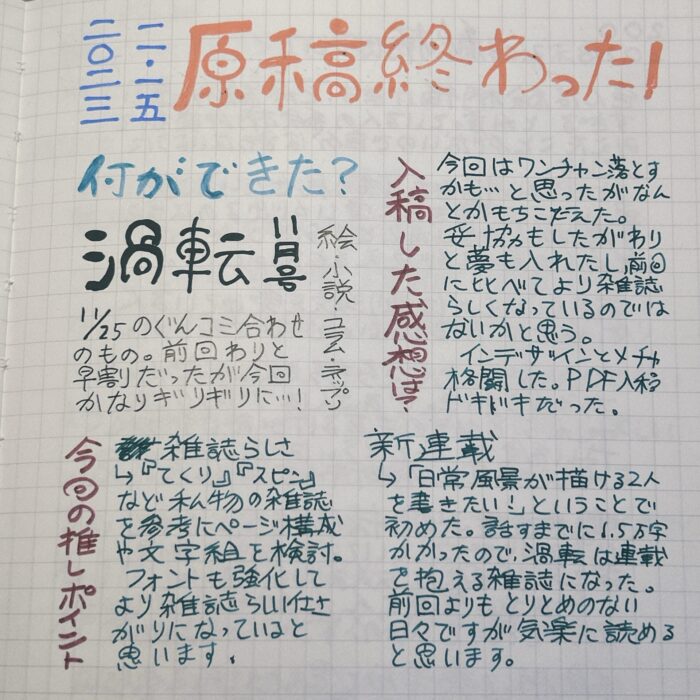 二〇二三
一一・一五
原稿終わった!
何ができた?
渦転
11月号
絵・小説・コラム・ネップリ
11/25のぐんコミ合わせ
のもの。前回わりと
早割だったが今回
かなりギリギリに…!
入稿した感想は?
今回はワンチャン落とす
かも…と思ったがなん
とかもちこたえた。
妥協もしたがわり
と夢も入れたし、前回
に比べてより雑誌
らしくなっているのでは
ないかと思う。
インデザインとメチャ
格闘した。PDF入稿
ドキドキだった。
今回の推しポイント
雑誌らしさ
↳『てくり』『スピン』
など私物の雑誌
を参考にページ構成
や文字組を検討。
フォントも強化して
より雑誌らしい仕上
がりになっていると
思います。
新連載
↳「日常風景が描ける2人
を書きたい!」ということで
初めた。話すまでに1.5万字
かかったので、渦転は連載
を抱える雑誌になった。
前回よりもとりとめのない
日々ですが気楽に読める
と思います。